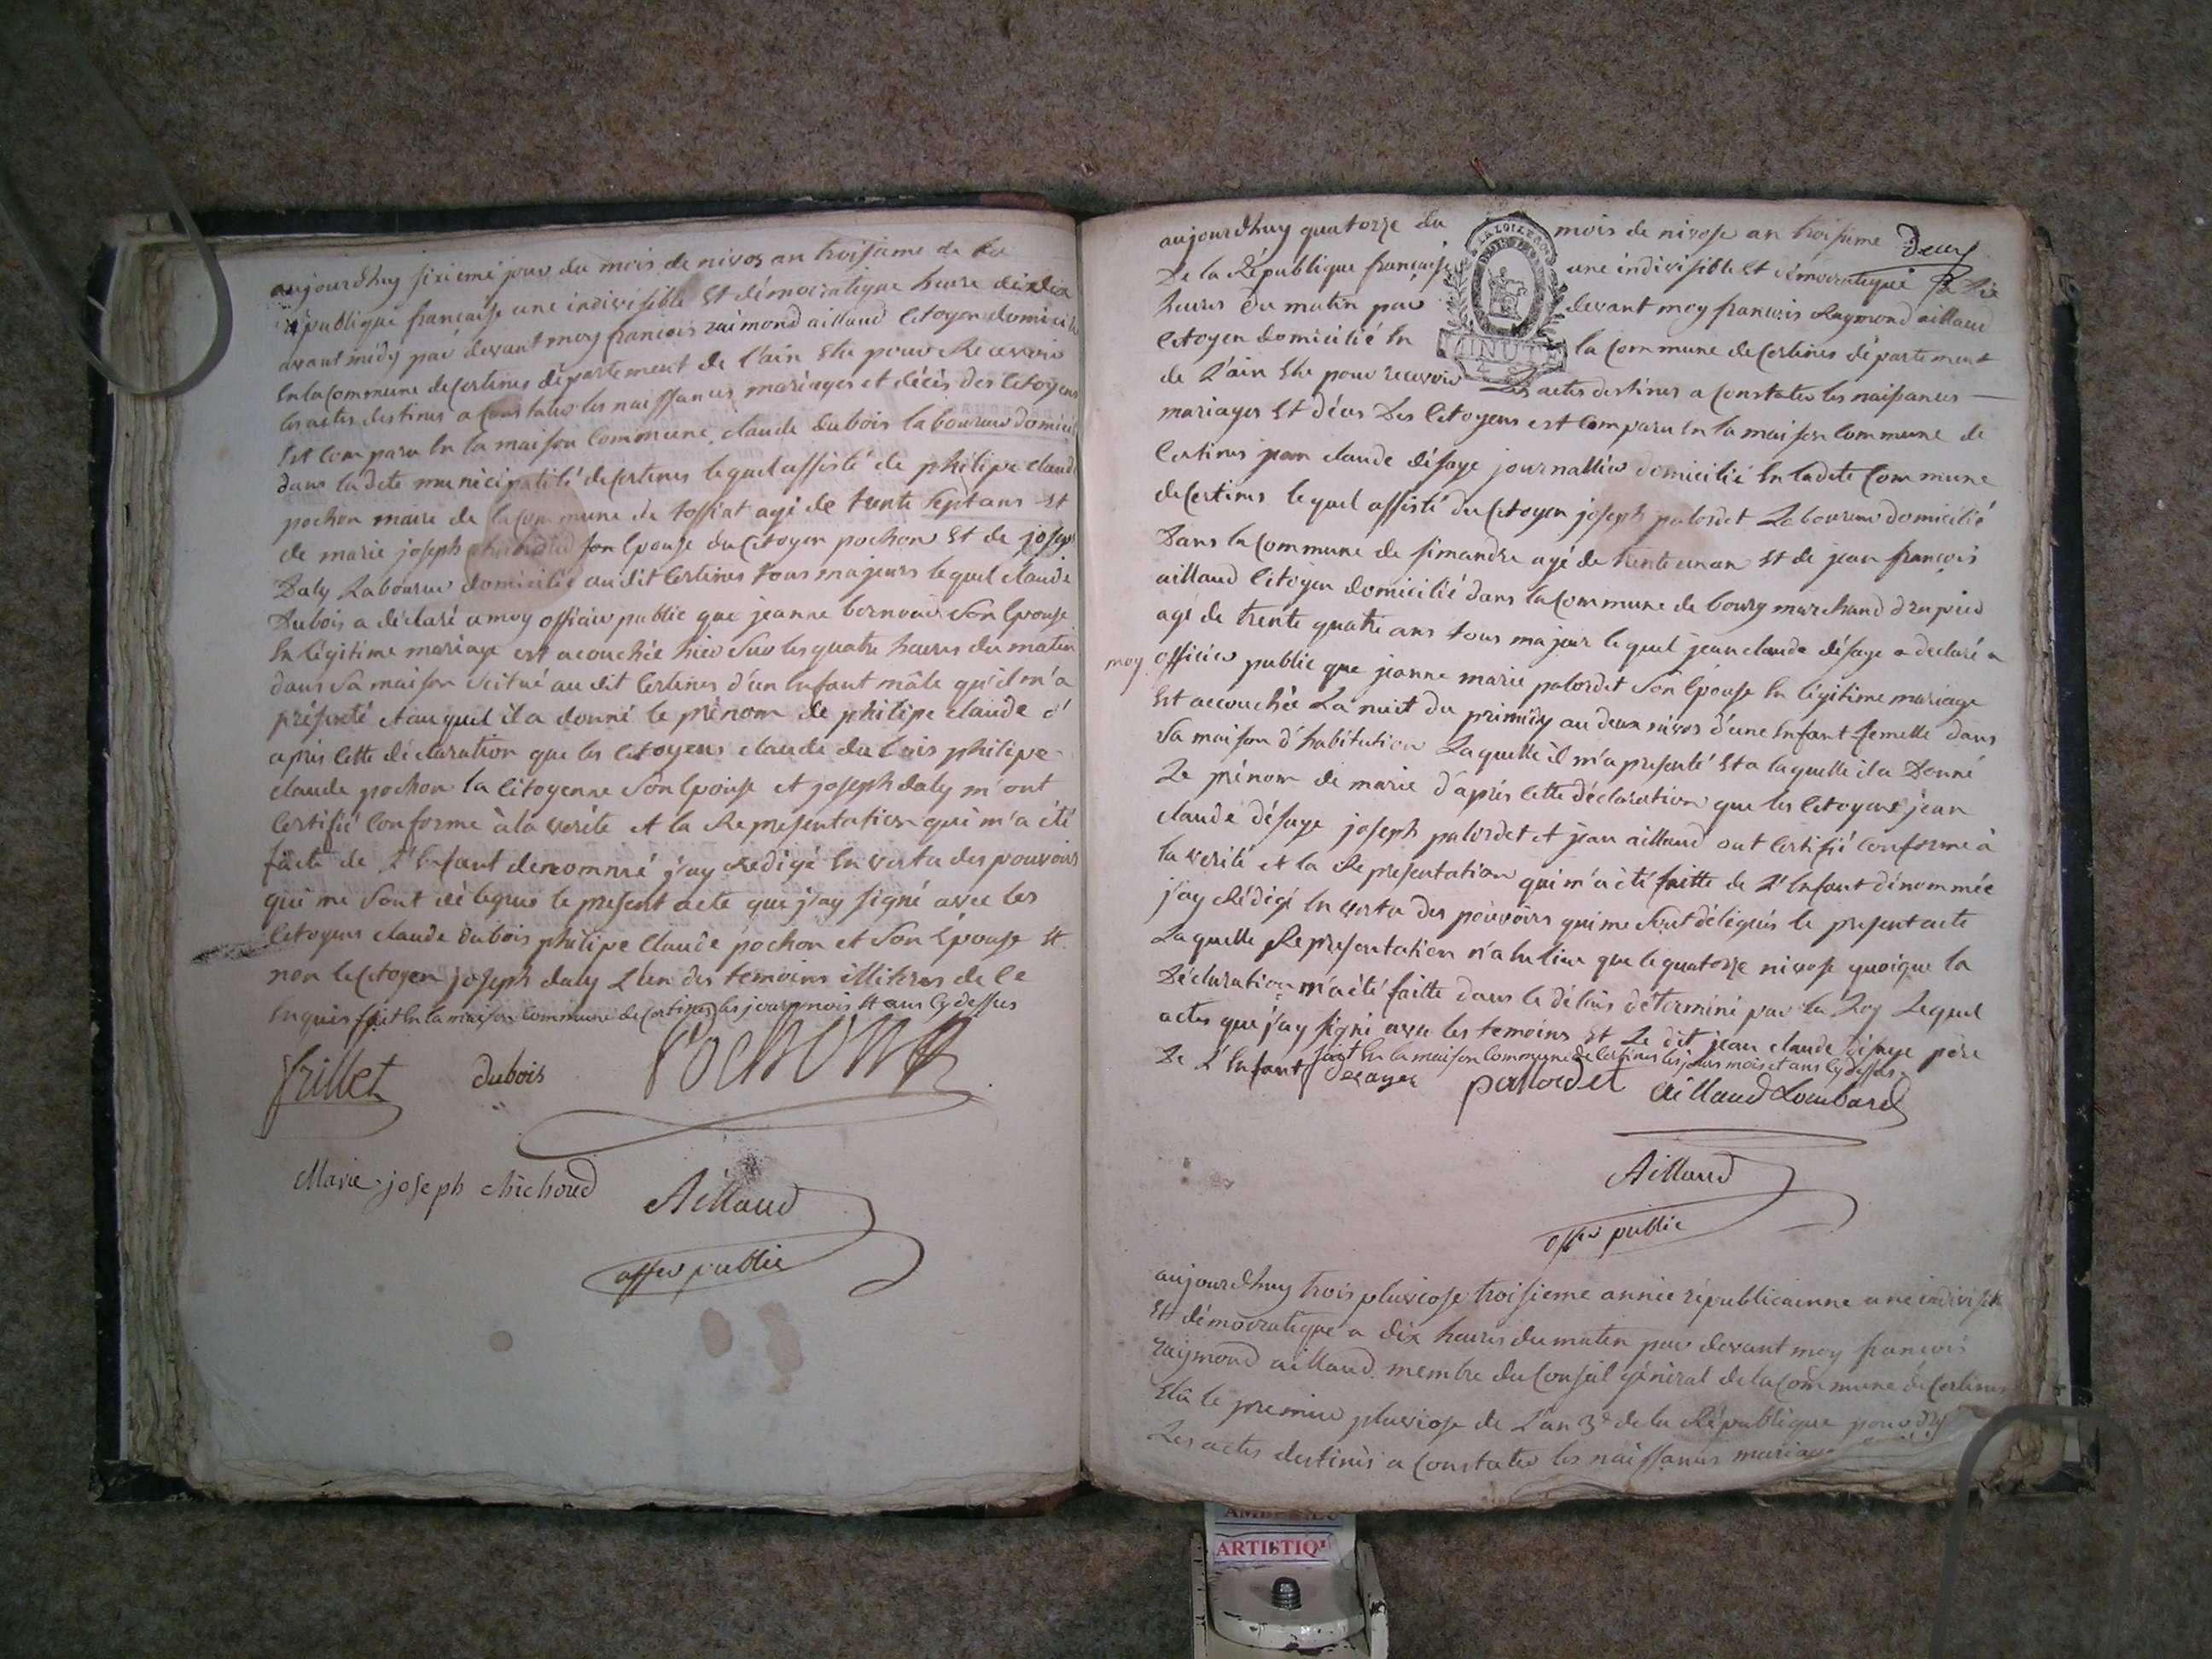 aujourdhuy sixieme jour du mois de nivos an troisieme de la
république française une indivisible Et démocratique heure de dix
avant midy par devant moy françois raimond aillaud Citoyen domicilié
En la Commune de Certines département de l'ain Elu pour Recevoir
les actes destinés a Constater les naissances mariages et décès des Citoyens
Est Comparu En la maison Commune claude dubois laboureur domicilié
dans ladete municipalité de Certines lequel assisté de philipe claude
pochon maire de la Commune de tossiat agé de trente sept ans Et
de marie joseph chichoud son Epouse du Citoyen pochon Et de joseph
Daly Laboureur domicilié au dit Certines tous majeurs lequel claude
Dubois a déclaré a moy officier public que jeanne son Epouse
En légitime mariage est acouchée hier Sur les quatre heures du matin
dans Sa maison Scitué au dit Certines d'un Enfant mâle qu'il m'a
présenté et auquel il a donné le prénom de philipe claude d'
apris Cette déclaration que les Citoyens claude dubois philipe
claude pochon la Citoyenne Son Epouse et joseph daly m'ont
Certifié Conforme à la verité et la Representation qui m'a été
faite de L'Enfant denommé j'ay Rédigé En vertu des pouvoirs
qui me Sont délegués le present acte que j'ay signé avec les
Citoyens claude dubois philipe Claude pochon et Son Epouse Et
non le Citoyen joseph daly L'un des temoins illiteres de Ce
Enquis fait En la maison Commune de Certines les jours mois Et ans Cy dessus
frillet dubois Pochon
Marie joseph chichoud Aillaud
offer public
aujourdhuy quatorze du mois de nivose an troisieme
De la République française une indivisible Et démocratique a Dix
heures du matin par devant moy françois Raymond aillaud
Citoyen domicilié En la Commune de Certines département
LA LOI LE ROI
MINUTE
de L'ain Elu pour recevoir Les actes destinés a Constater les naissances
mariages Et décès Des Citoyens est Comparu En la maison Commune de
Certines jean claude désaye journallier domicilié En ladete Commune
de Certines lequel assisté du Citoyen joseph palordet Laboureur domicilié
Dans la Commune de simandre agé de trente un an Et de jean françois
aillaud Citoyen domicilié dans la Commune de bourg marchand drapier
agé de trente quatre ans tous majeur lequel jean claude désaye a declaré a
moy officier public que jeanne marie palordet Son Epouse En légitime mariage
Est accouchée La nuit du primidy au deux nivos d'une Enfant femelle dans
Sa maison d'habitation Laquelle il m'a presenté Et a laquelle il a Donné
Le prénom de marie d'apris Cette déclaration que les Citoyens jean
claude désaye joseph palordet et jean aillaud ont Certifié Conforme à
la verité et la Representation qui m'a été faitte de L'Enfant dénommée
j'ay Rédigé En vertu des pouvoirs qui me Sont délégués le present acte
Laquelle Representation n'a Eu lieu que le quatorze nivose quoique la
Déclaration m'a été faitte dans le délais déterminé par la Loy Lequel
actes que j'ay signé avec les temoins Et Le dit jean claude désaye père
De L'Enfant fait En la maison Commune de Certines les jours mois et ans Cy dessus
Desayes palordet Aillaud Lombard
Aillaud
offer public
aujourdhuy trois pluviose troisieme année républicainne une indivisible
Et démocratique a dix heures du matin par devant moy françois
raymond aillaud membre du Conseil général de la Commune de Certines
Elû le premier pluviose de L'an 3e de la République pour
Les actes destinés a Constater les naissances mariages
ARTISTIQ